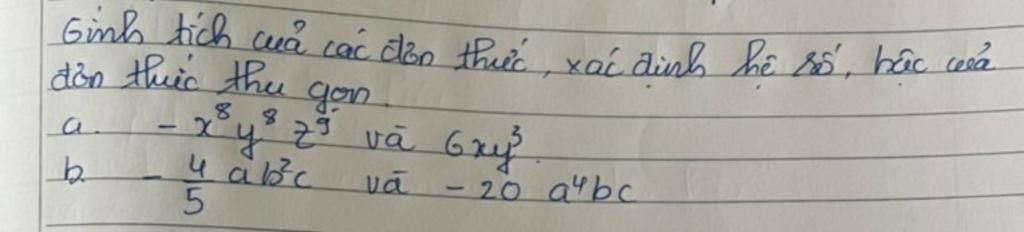 Gính tích cuả các đơn thức, xác định hệ số, bậc cuả
đơn thức thu gọn.
a. - x⁸y⁸z⁹ và 6xy³.
b. - 4/5 ab²c và - 20 a⁴bc